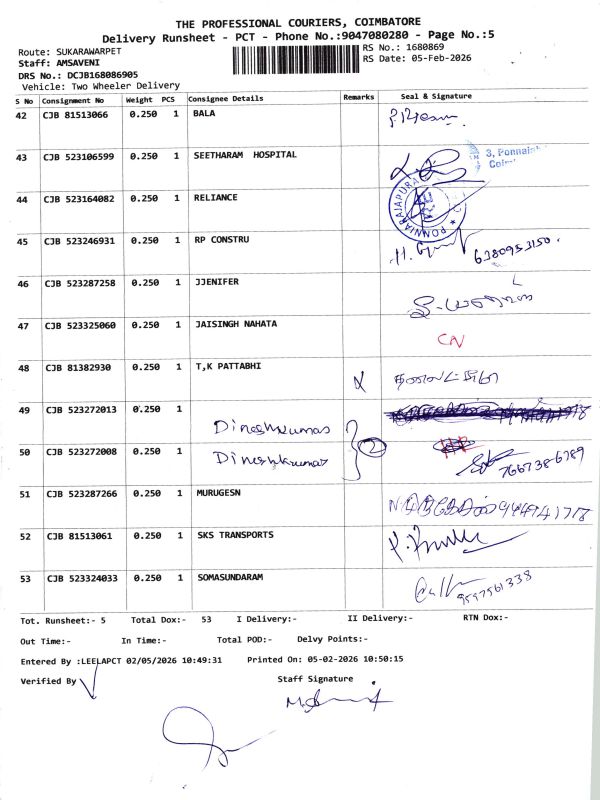 THE PROFESSIONAL COURIERS, COIMBATORE
Delivery Runsheet - PCT - Phone No.:9047080280 - Page No.:5
Route: SUKARAWARPET
RS No.: 1680869
Staff: AMSAVENI
RS Date: 05-Feb-2026
DRS No.: DCJB168086905
Vehicle: Two Wheeler Delivery
S No Consignment No Weight PCS Consignee Details Remarks Seal & Signature
42 CJB 81513066 0.250 1 BALA
43 CJB 523106599 0.250 1 SEETHARAM HOSPITAL
3, Ponnaiah
44 CJB 523164082 0.250 1 RELIANCE
PONNIARAJAPURA
45 CJB 523246931 0.250 1 RP CONSTRU 6380953150.
46 CJB 523287258 0.250 1 JJENIFER
47 CJB 523325060 0.250 1 JAISINGH NAHATA CN
48 CJB 81382930 0.250 1 T,K PATTABHI
49 CJB 523272013 0.250 1 Dineshkumar
50 CJB 523272008 0.250 1 Dineshkumar 2 7667386789
51 CJB 523287266 0.250 1 MURUGESN
52 CJB 81513061 0.250 1 SKS TRANSPORTS
53 CJB 523324033 0.250 1 SOMASUNDARAM 9597561338
Tot. Runsheet:- 5 Total Dox:- 53 I Delivery:- II Delivery:- RTN Dox:-
Out Time:- In Time:- Total POD:- Delvy Points:-
Entered By :LEELAPCT 02/05/2026 10:49:31 Printed On: 05-02-2026 10:50:15
Verified By Staff Signature